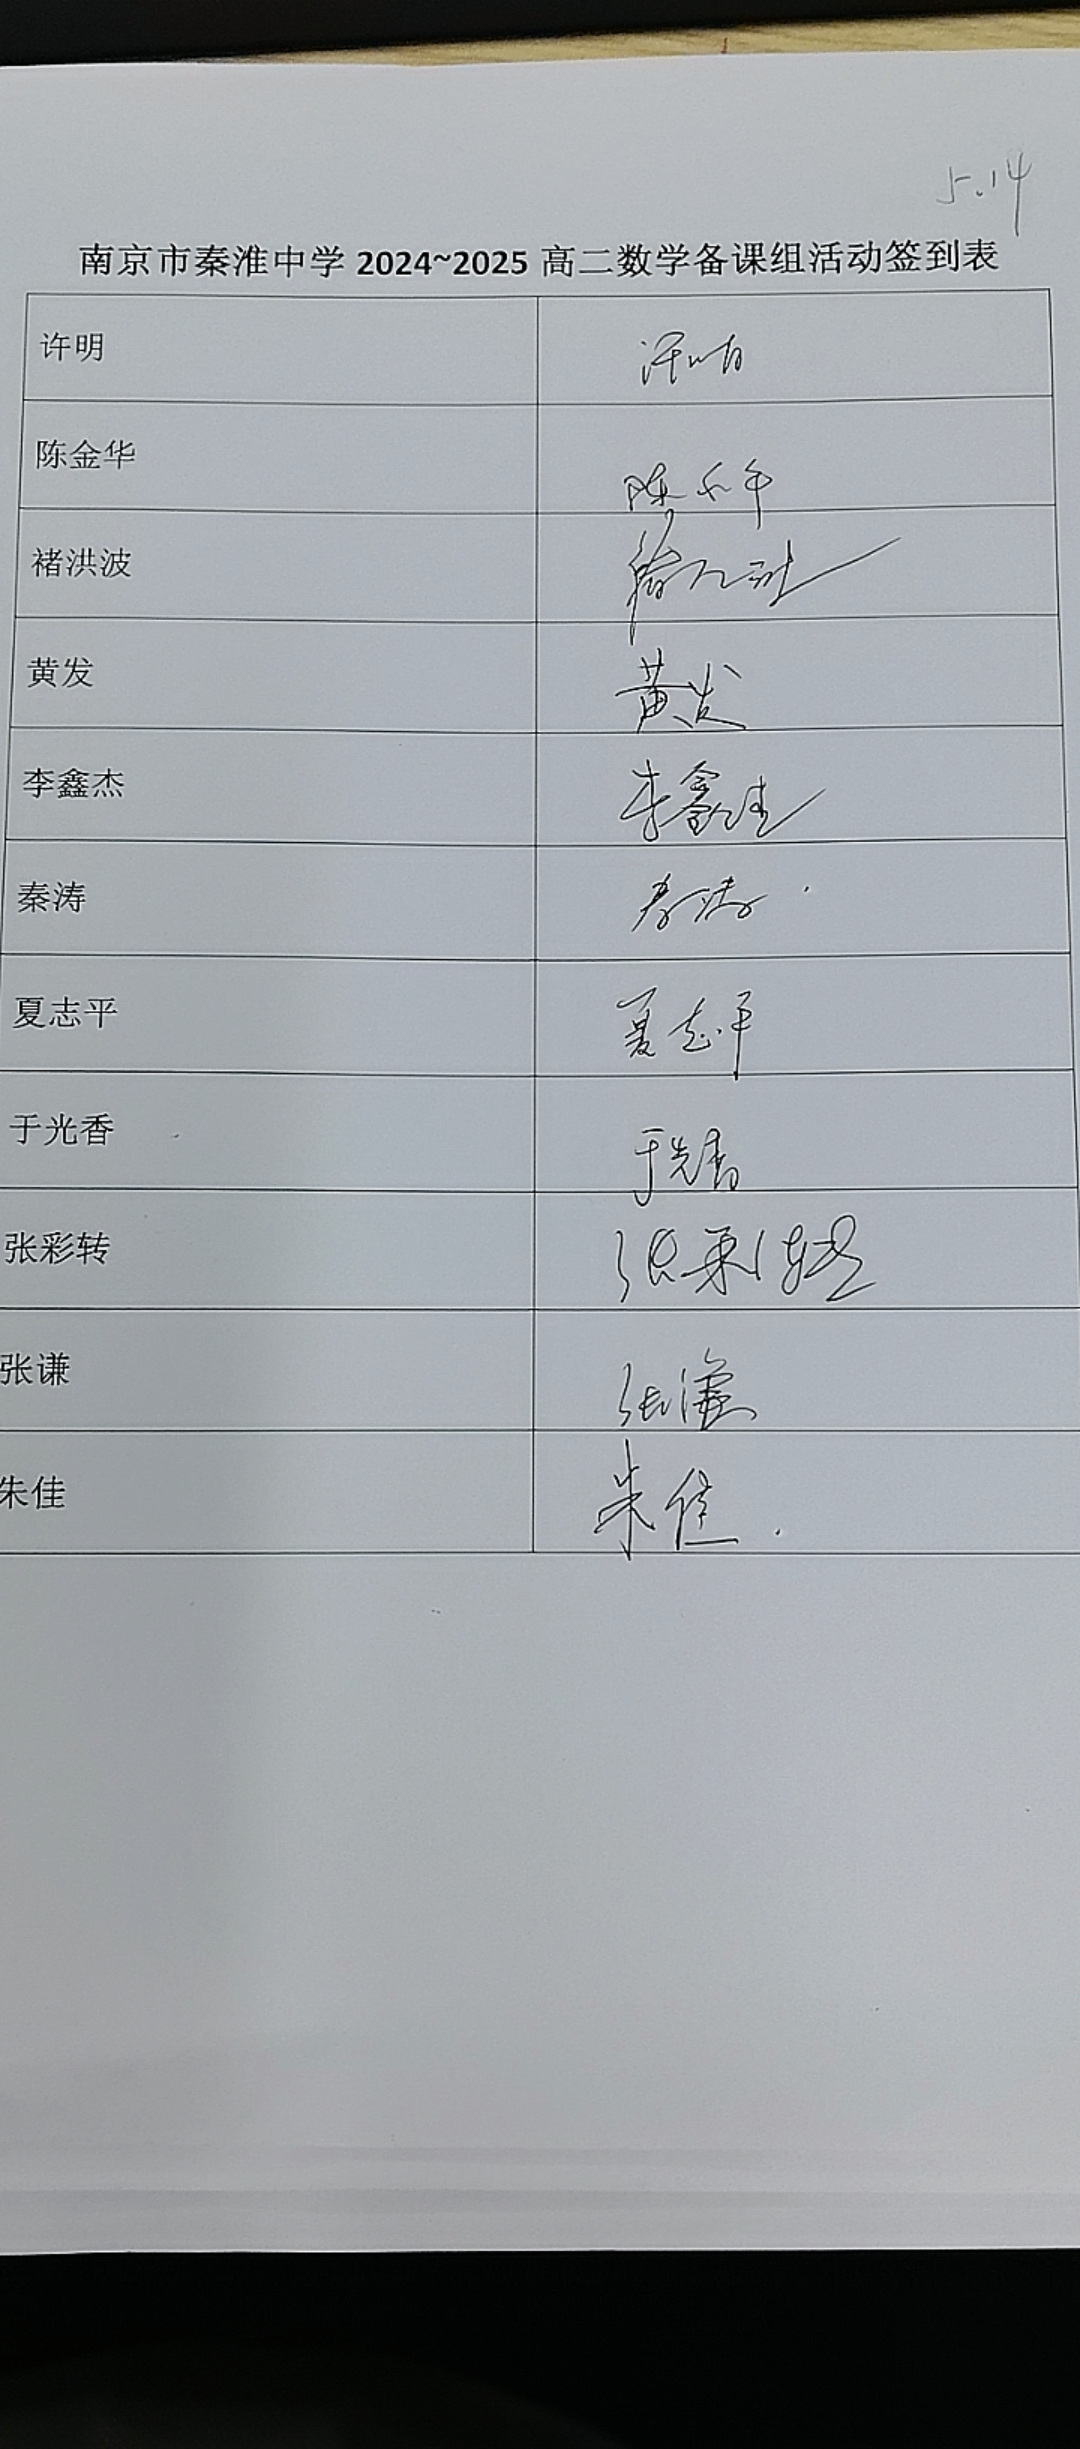 5.14
南京市秦淮中学 2024~2025 高二数学备课组活动签到表
许明 许明
陈金华 陈金华
褚洪波
黄发 黄发
李鑫杰 李鑫杰
秦涛 秦涛
夏志平 夏志平
于光香 于光香
张彩转 张彩转
张谦 张谦
朱佳 朱佳